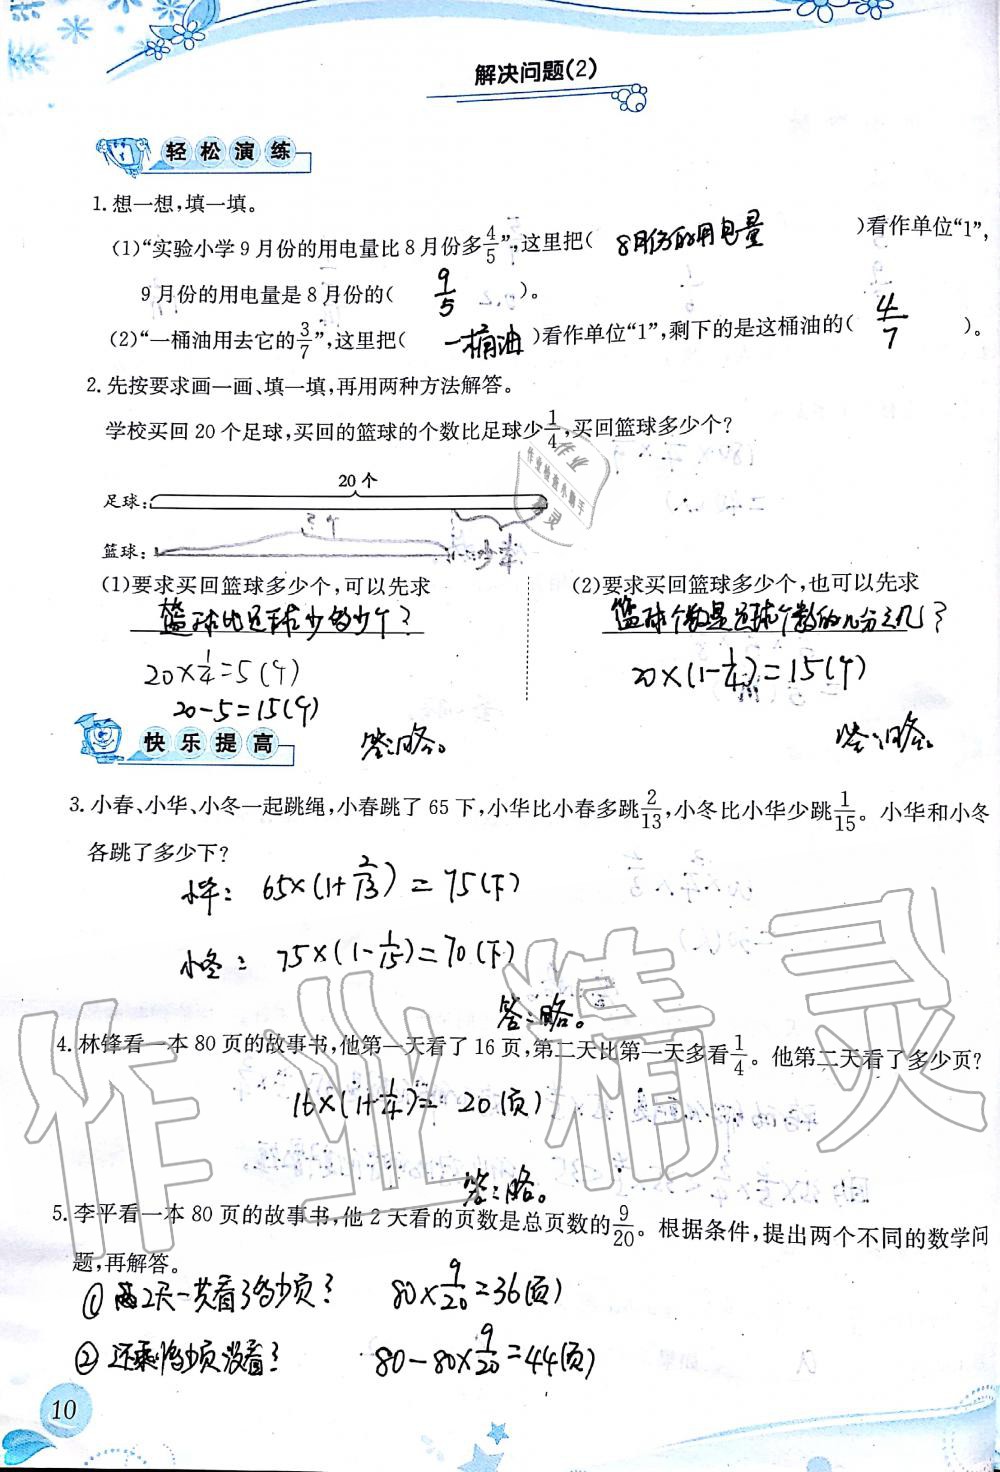 解决问题(2)
轻松演练
1.想一想,填一填。
(1)“实验小学9月份的用电量比8月份多4/5”,这里把( 8月份的用电量 )看作单位“1”,
9月份的用电量是8月份的( 9/5 )。
(2)“一桶油用去它的3/7”,这里把( 一桶油 )看作单位“1”,剩下的是这桶油的( 4/7 )。
2.先按要求画一画、填一填,再用两种方法解答。
学校买回20个足球,买回的篮球的个数比足球少1/4,买回篮球多少个?
20个
足球:
篮球:
(1)要求买回篮球多少个,可以先求
篮球比足球少多少个?
20×1/4=5(个)
20-5=15(个)
答:略。
(2)要求买回篮球多少个,也可以先求
篮球个数是足球个数的几分之几?
20×(1-1/4)=15(个)
答:略。
快乐提高
3.小春、小华、小冬一起跳绳,小春跳了65下,小华比小春多跳2/13,小冬比小华少跳1/15。小华和小冬
各跳了多少下?
小华: 65×(1+2/13)=75(下)
小冬: 75×(1-1/15)=70(下)
答:略。
4.林锋看一本80页的故事书,他第一天看了16页,第二天比第一天多看1/4。他第二天看了多少页?
16×(1+1/4)=20(页)
答:略。
5.李平看一本80页的故事书,他2天看的页数是总页数的9/20。根据条件,提出两个不同的数学问
题,再解答。
① 2天一共看了多少页? 80×9/20=36(页)
② 还剩多少页没看? 80-80×9/20=44(页)
10
作业精灵
作业
作业检查小助手
精灵